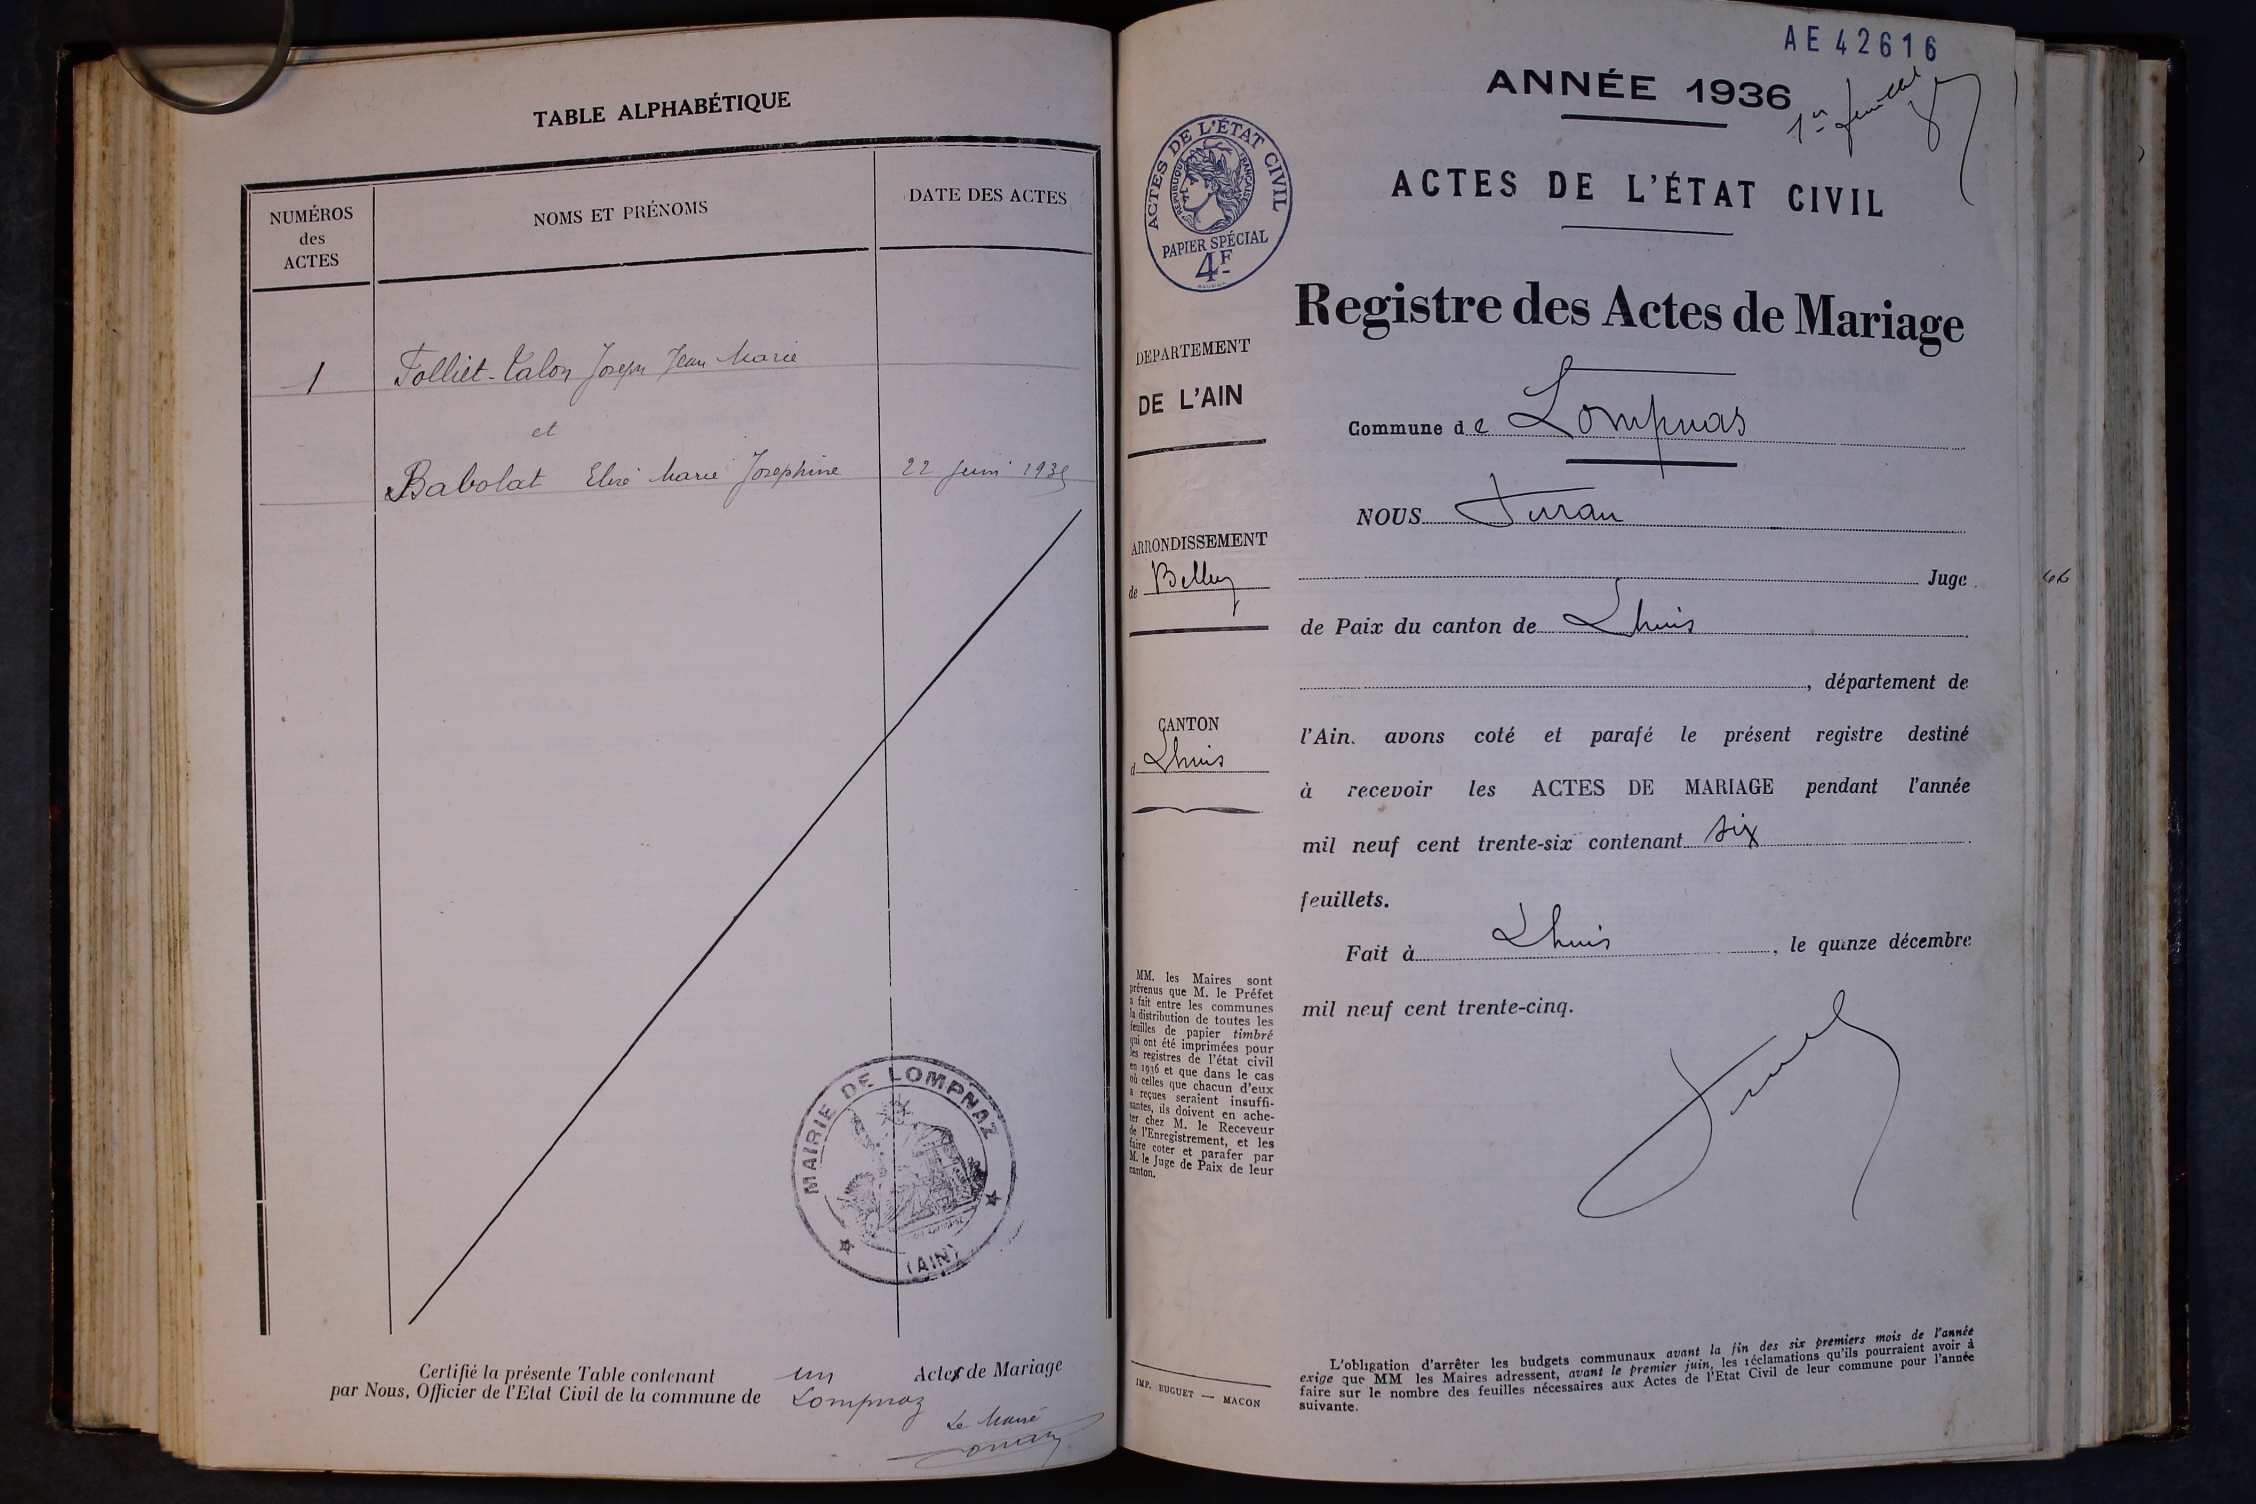 TABLE ALPHABÉTIQUE
NUMÉROS
des
ACTES
NOMS ET PRÉNOMS
DATE DES ACTES
1
Folliet-Talon Joseph Jean Marie
et
Babolat Elise Marie Josephine
22 Juin 1935
MAIRIE DE LOMPNAZ
(AIN)
Certifié la présente Table contenant un Actes de Mariage
par Nous, Officier de l'Etat Civil de la commune de Lompnaz
Le Maire
AE42616
ANNÉE 1936
1er feuillet
ACTES DE L'ÉTAT CIVIL
RÉPUBLIQUE FRANÇAISE
PAPIER SPÉCIAL
4F
ACTES DE L'ÉTAT CIVIL
Registre des Actes de Mariage
DÉPARTEMENT
DE L'AIN
ARRONDISSEMENT
de Belley
CANTON
d Lhuis
MM. les Maires sont
prévenus que M. le Préfet
a fait entre les communes
la distribution de toutes les
feuilles de papier timbré
qui ont été imprimées pour
les registres de l'état civil
en 1936 et que dans le cas
où celles que chacun d'eux
a reçues seraient insuffi-
santes, ils doivent en ache-
ter chez M. le Receveur
de l'Enregistrement, et les
faire coter et parafer par
M. le Juge de Paix de leur
canton.
IMP. BUGUET — MACON
Commune de Lompnas
NOUS
Juge
de Paix du canton de Lhuis
, département de
l'Ain, avons coté et parafé le présent registre destiné
à recevoir les ACTES DE MARIAGE pendant l'année
mil neuf cent trente-six contenant six
feuillets.
Fait à Lhuis, le quinze décembre
mil neuf cent trente-cinq.
L'obligation d'arrêter les budgets communaux avant la fin des six premiers mois de l'année
exige que MM les Maires adressent, avant le premier juin, les réclamations qu'ils pourraient avoir à
faire sur le nombre des feuilles nécessaires aux Actes de l'Etat Civil de leur commune pour l'année
suivante.